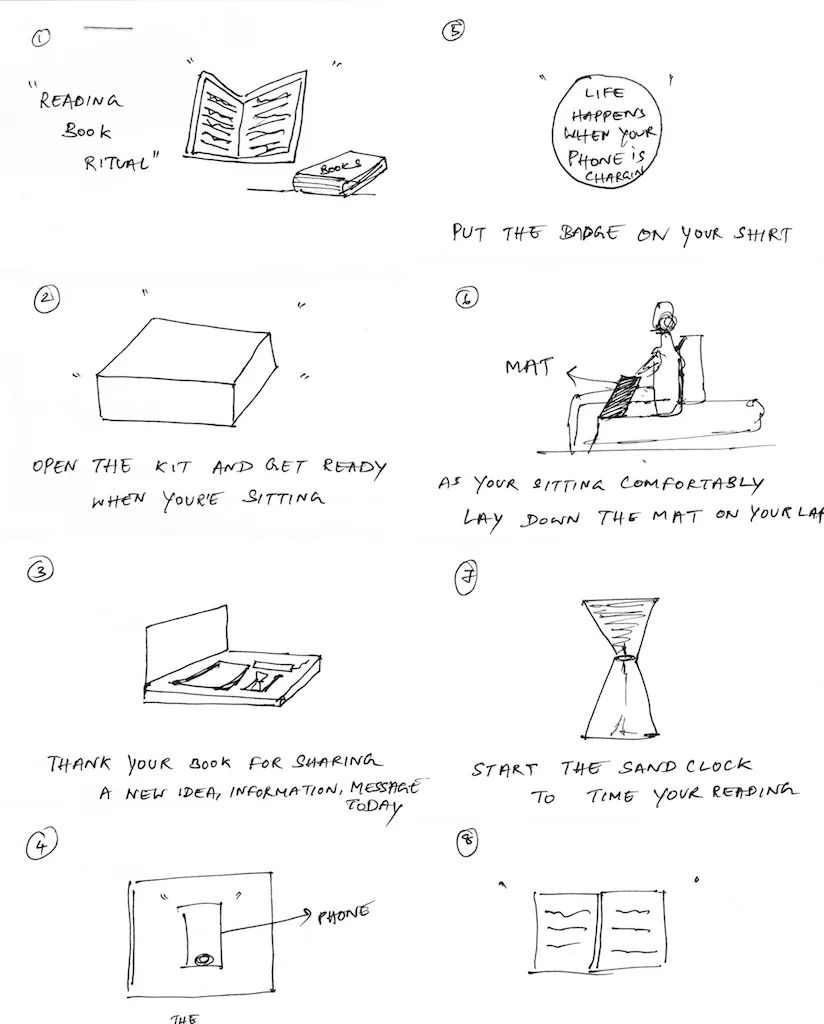 1
"READING
BOOK
RITUAL"
BOOKS
2
OPEN THE KIT AND GET READY
WHEN YOUR'E SITTING
3
THANK YOUR BOOK FOR SHARING
A NEW IDEA, INFORMATION, MESSAGE
TODAY
4
PHONE
THE
5
LIFE
HAPPENS
WHEN YOUR
PHONE IS
CHARGIN
PUT THE BADGE ON YOUR SHIRT
6
MAT
AS YOUR SITTING COMFORTABLY
LAY DOWN THE MAT ON YOUR LAP
7
START THE SAND CLOCK
TO TIME YOUR READING
8